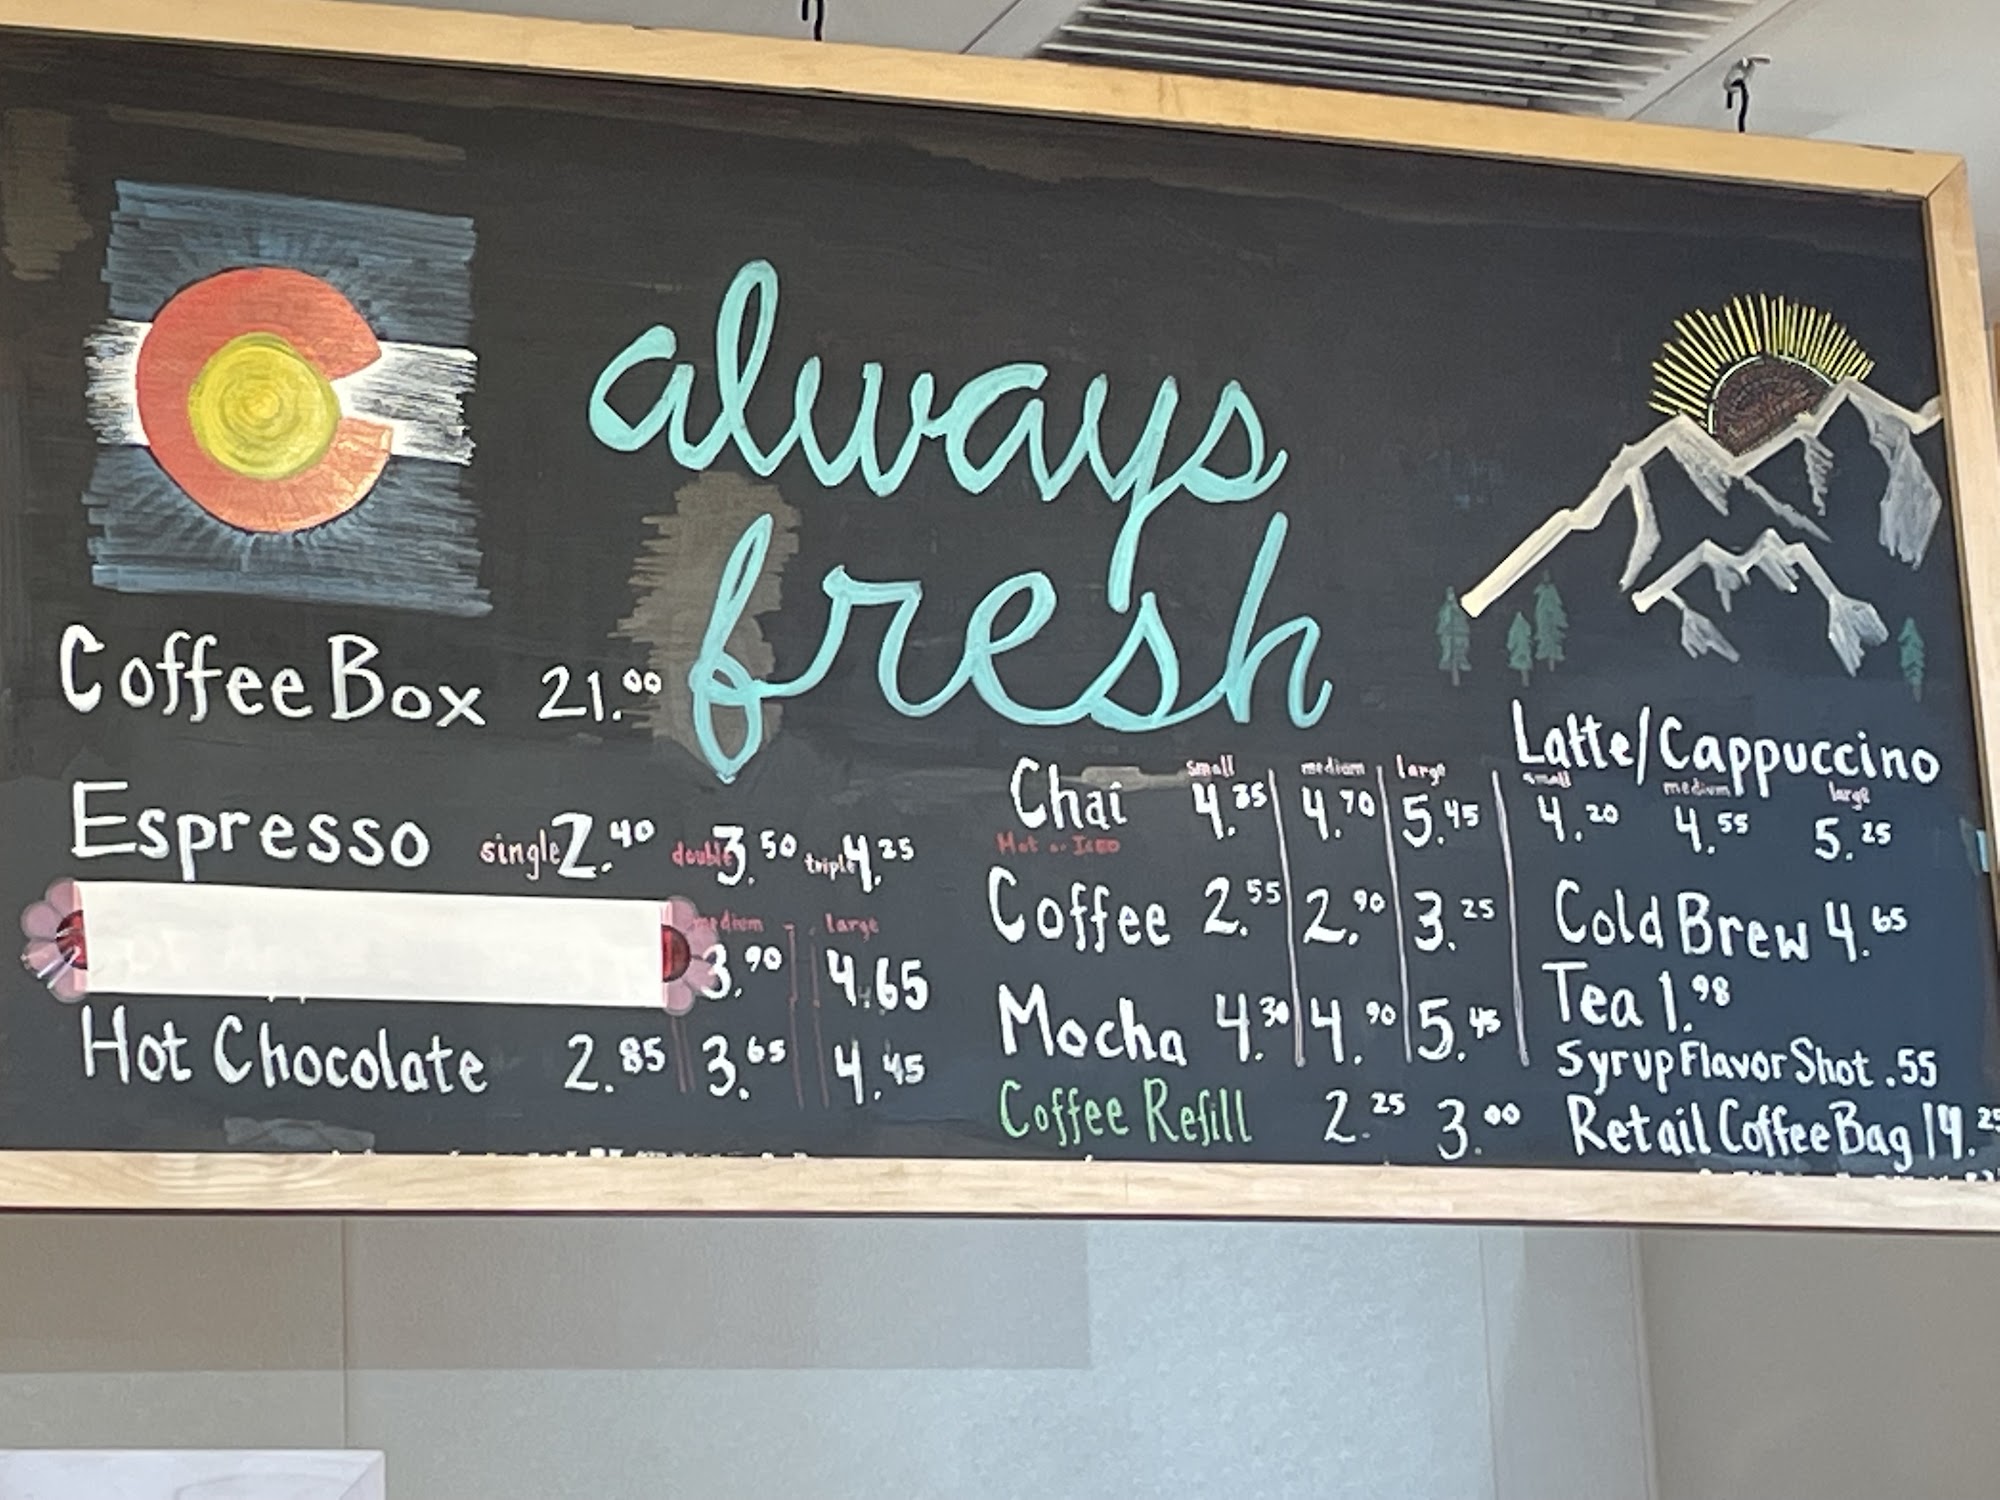 always
fresh
Coffee Box 21.00
Espresso single 2.40 double 3.50 triple 4.25
medium large
3.90 4.65
Hot Chocolate 2.85 3.65 4.45
small medium large
Chai 4.35 4.70 5.45
Hot or ICED
Coffee 2.55 2.90 3.25
Mocha 4.30 4.90 5.45
Coffee Refill 2.25 3.00
Latte/Cappuccino
small medium large
4.20 4.55 5.25
Cold Brew 4.65
Tea 1.98
Syrup Flavor Shot .55
Retail Coffee Bag 14.25